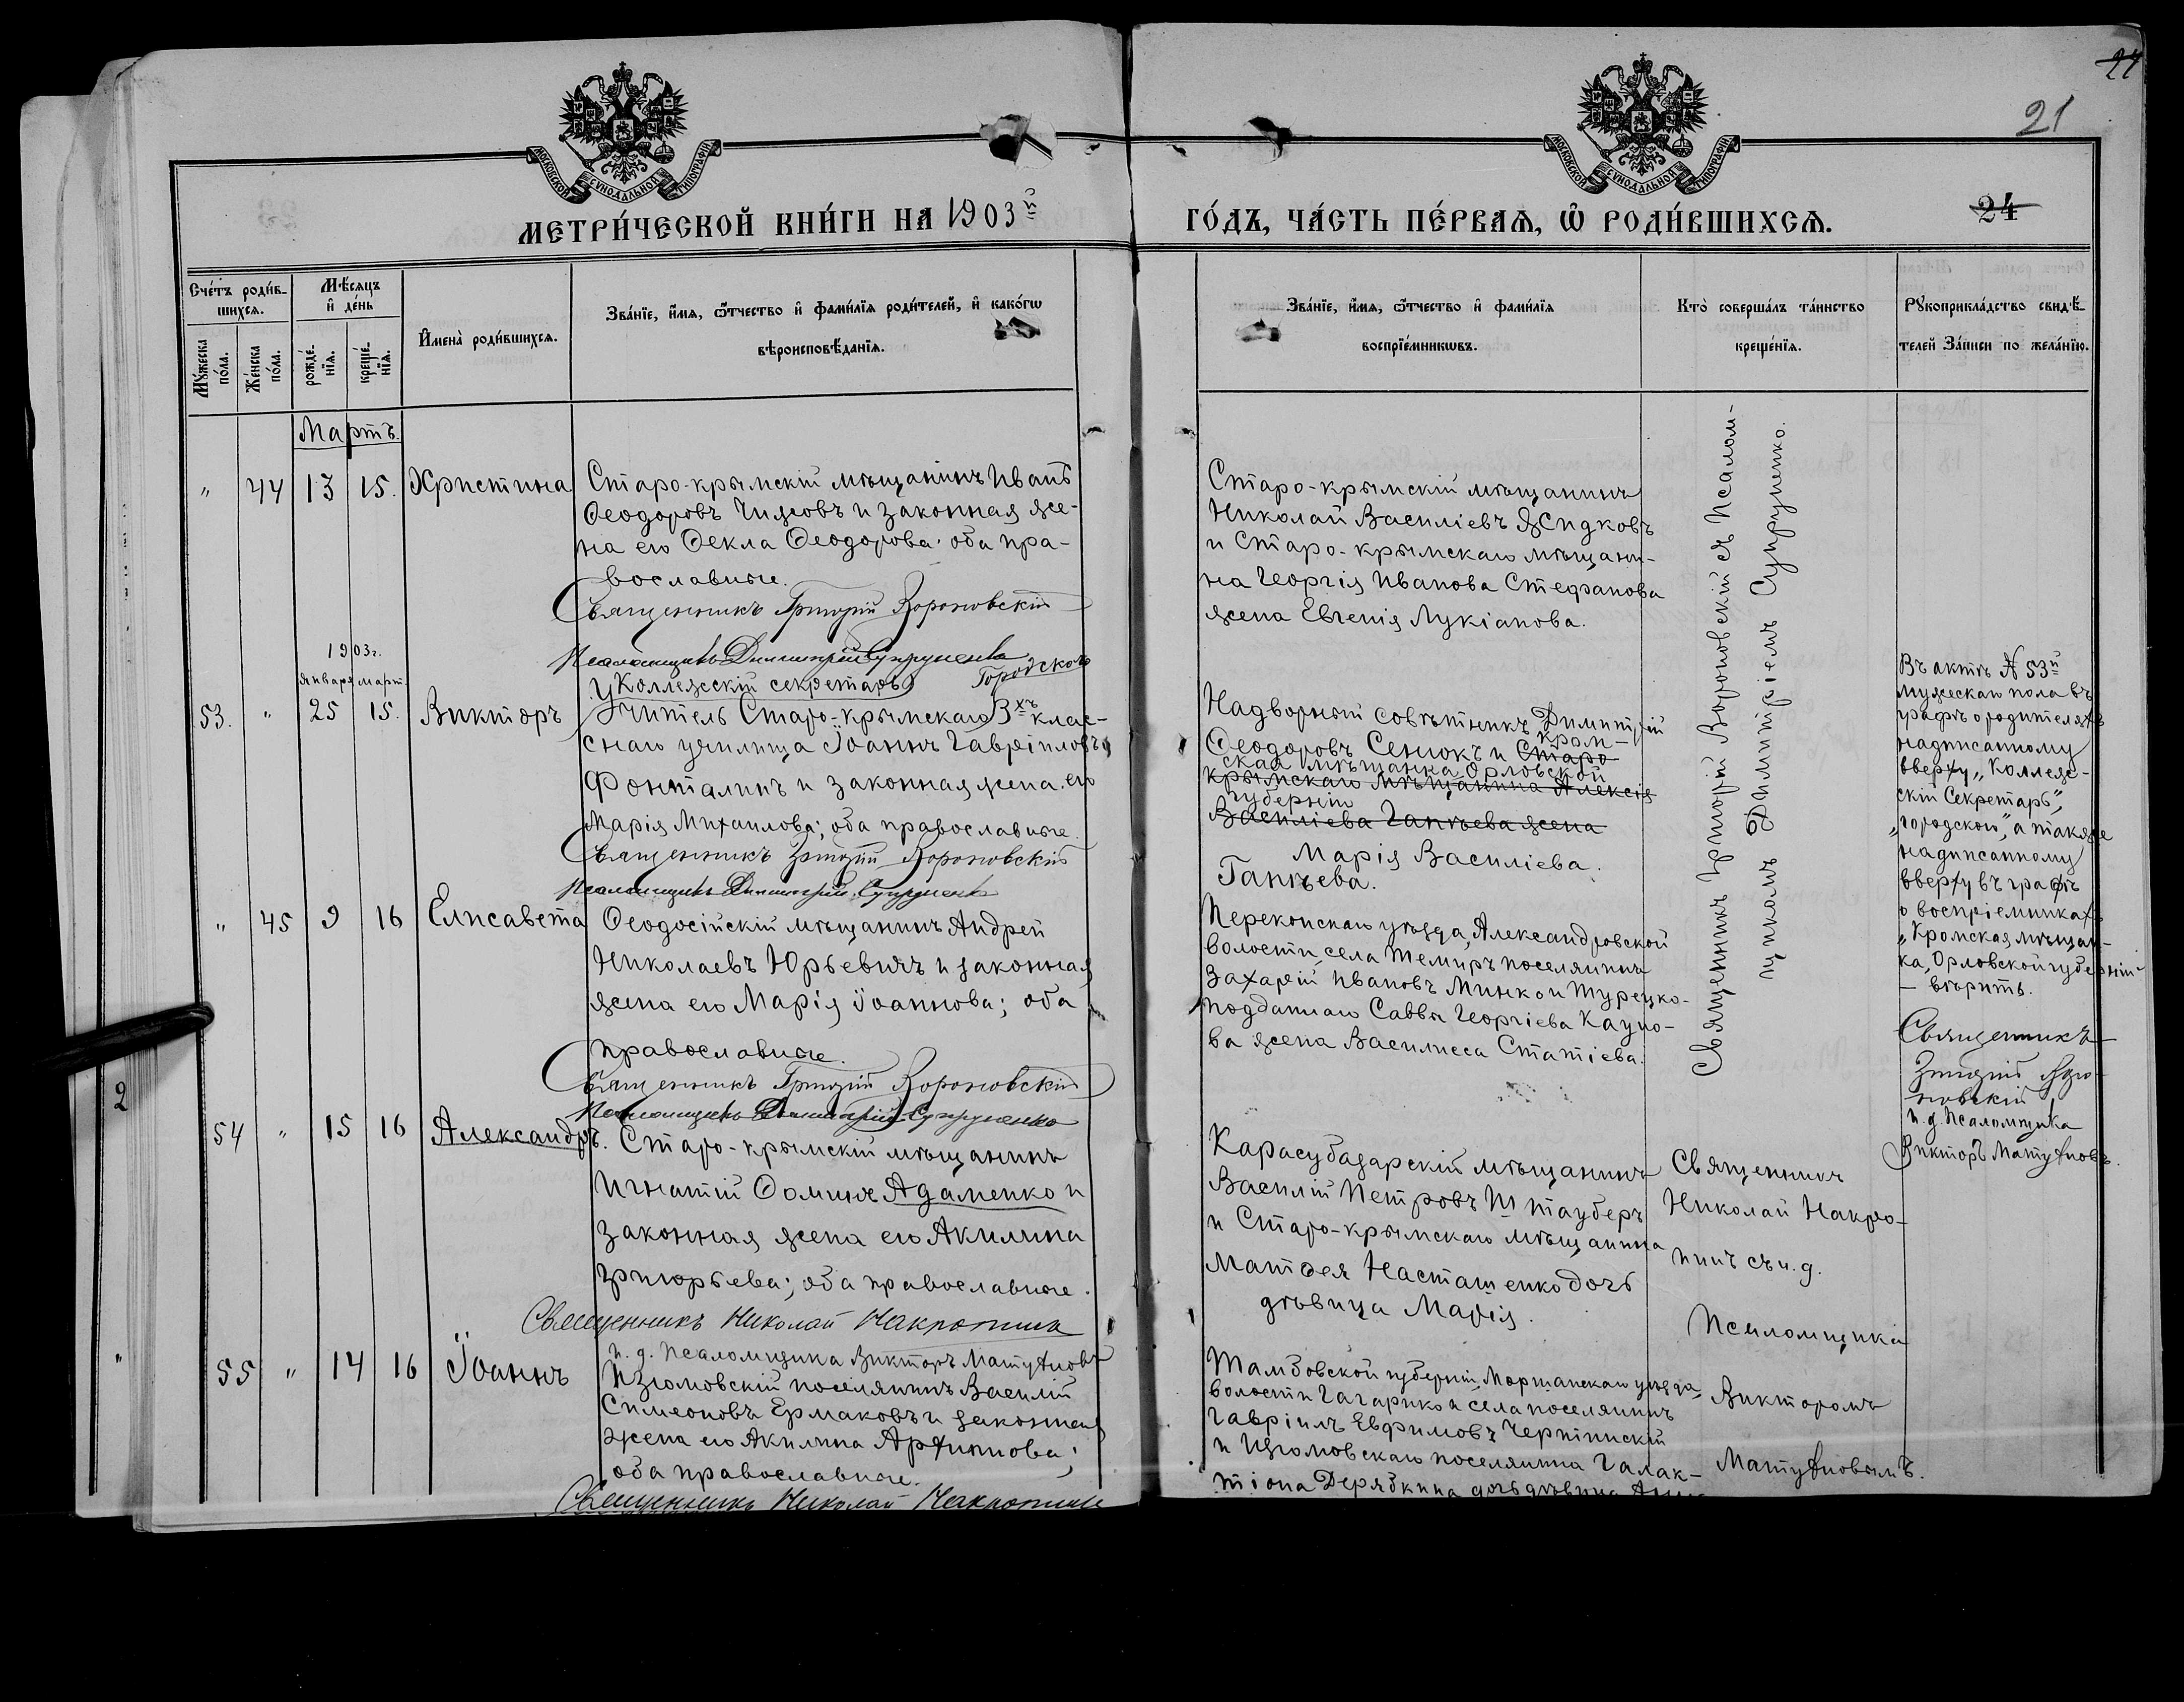 24
21
МОСКОВСКОЙ СѴНОДАЛЬНОЙ ТИПОГРАФІИ
МОСКОВСКОЙ СѴНОДАЛЬНОЙ ТИПОГРАФІИ
МЕТРИ́ЧЕСКОЙ КНИ́ГИ НА 1903й
ГО́ДЪ, ЧА́СТЬ ПЕ́РВАѦ, Ѡ҆ РОДИ́ВШИХСѦ.
24
Сче́тъ роди́в-
шихсѧ.
Мѣ́сѧцъ
и҆ де́нь
И҆мена̀ роди́вшихсѧ.
Зва́нїе, и҆́мѧ, ѻ҆́тчество и҆ фами́лїѧ роди́телей, и҆ како́гѡ
вѣроисповѣ́данїѧ.
Мꙋ́жеска
по́ла.
Же́нска
по́ла.
рожде́-
нїѧ.
креще́-
нїѧ.
Зва́нїе, и҆́мѧ, ѻ҆́тчество и҆ фами́лїѧ
воспрїе́мникѡвъ.
Кто̀ соверша́лъ та́инство
креще́нїѧ.
Рꙋкоприкла́дство свидѣ́-
телей за́писи по жела́нїю.
Мартъ.
" 44 13 15. Христина
Старо-крымскій мѣщанинъ Иванъ
Ѳеодоровъ Чижовъ и законная же-
на его Ѳекла Ѳеодорова; оба пра-
вославные.
Священникъ Григорій Вороновскій
Псаломщикъ Димитрій Супруненко
Старо-крымскій мѣщанинъ
Николай Василіевъ Жидковъ
и Старо-крымскаго мѣщани-
на Георгія Иванова Стефанова
жена Евгенія Лукіанова.
Священникъ Григорій Вороновскій съ Псалом-
щикомъ Димитріемъ Супруненко.
1903г.
Января Март.
53. " 25 15. Викторъ
Коллежскій секретарь Городского
Учитель Старо-крымскаго 3хъ клас-
снаго училища Іоаннъ Гавріиловъ
Фонталинъ и законная жена его
Марія Михаилова; оба православные.
Священникъ Григорій Вороновскій
Псаломщикъ Димитрій Супруненко
Надворный совѣтникъ Димитрій
Ѳеодоровъ Сенюкъ и Старо
Кром-
ская мѣщанка Орловской
крымскаго мѣщанина Алексія
губерніи
Василіева Ганѣева жена
Марія Василіева.
Ганѣева.
Въ актѣ № 53й
мужескаго пола въ
графѣ о родителяхъ
надписанному
вверху „Коллеж-
скій Секретарь",
„городского", а также
надписанному
вверху въ графѣ
о воспріемникахъ
„Кромская мѣщан-
ка, Орловской губерніи
— вѣрить.
Священникъ
Григорій Воро-
новскій
и. д. Псаломщика
Викторъ Матухновъ.
" 45 9 16 Елисавета
Ѳеодосійскій мѣщанинъ Андрей
Николаевъ Юрьевичъ и законная
жена его Марія Іоаннова; оба
православные.
Священникъ Григорій Вороновскій
Псаломщикъ Димитрій Супруненко
Перекопскаго уѣзда, Александровской
волости, села Темиръ поселянинъ
Захарій Ивановъ Минко и Турецко-
подданнаго Саввы Георгіева Кауно-
ва жена Василиса Статіева.
2
54 " 15 16 Александръ.
Старо-крымскій мѣщанинъ
Игнатій Ѳоминъ Адаменко и
законная жена его Акилина
Григорьева; оба православные.
Священникъ Николай Накропинъ
и. д. Псаломщика Викторъ Матухновъ
Карасубазарскій мѣщанинъ
Василій Петровъ Штауберъ
и Старо-крымскаго мѣщанина
Матѳея Насташенко дочь
дѣвица Марія.
Священникъ
Николай Накро-
пинъ съ и. д.
Псаломщика
Викторомъ
Матухновымъ.
" 55 " 14 16 Іоаннъ
Изюмовскій поселянинъ Василій
Симеоновъ Ермаковъ и законная
жена его Акилина Архипова;
оба православные.
Священникъ Николай Накропинъ
Тамбовской губерніи, Моршанскаго уѣзда,
волости Гагарино и села поселянинъ
Гавріилъ Евфимовъ Черпинскій
и Изюмовскаго поселянина Галак-
тіона Дерябкина дочь дѣвица